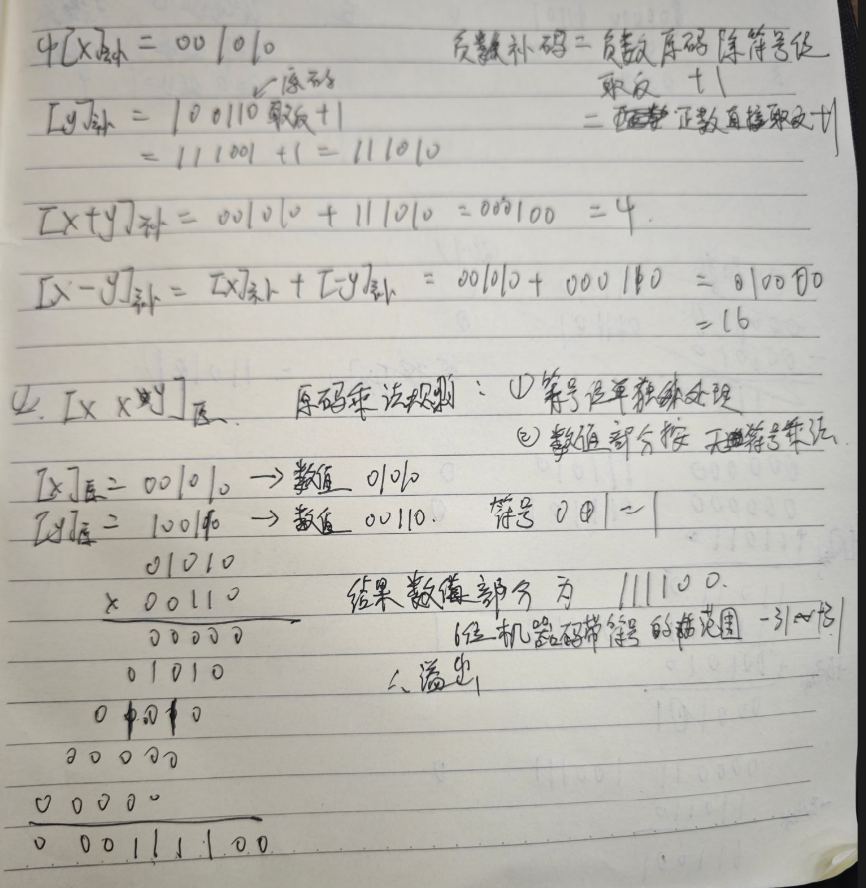 [x]补 = 001010
负数补码 = 负数原码除符号位
取反 +1
= 正数直接取反+1
原码
[y]补 = 100110 取反+1
= 111001 +1 = 111010
[x+y]补 = 001010 + 111010 = 000100 = 4.
[x-y]补 = [x]补 + [-y]补 = 001010 + 000110 = 010000
= 16
[x × y]原. 原码乘法规则: ① 符号位单独处理
② 数值部分按 无符号乘法
[x]原 = 001010 → 数值 01010
[y]原 = 100110 → 数值 00110. 符号 0⊕1=1
01010
× 00110
结果数值部分为 111100.
00000
6位机器码带符号的 范围 -31~+31
01010
∴ 溢出
01010
00000
00000
0 00111100